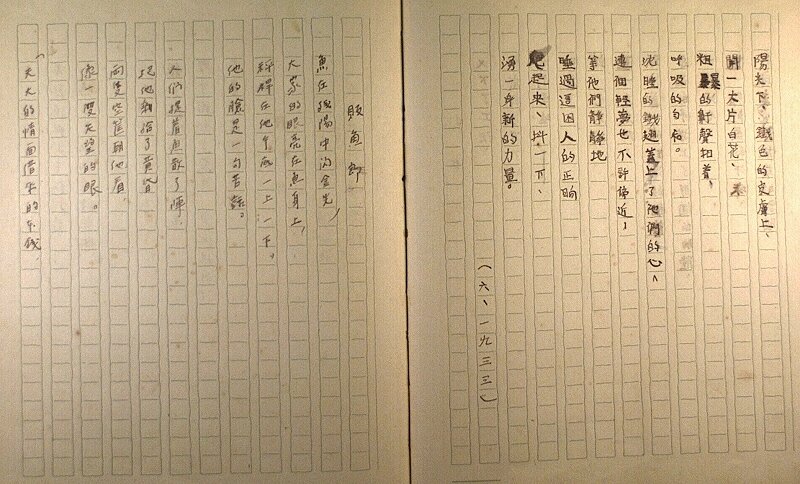 陽光下、鐵色的皮膚上、
開一大片白花、
粗暴的鼾聲扣着、
呼吸的匀和。
沈睡的鐵翅蓋上了他們的心、
連個輕夢也不許傍近，
等他們靜靜地
睡過這困人的正晌
爬起來、抖一下、
湧一身新的力量。
（六、一九三三）
販魚郎
魚在殘陽中閃金光，
大家的眼亮在魚身上，
秤桿在他手底一上一下。
他的臉是一句苦話。
人們提着魚散了陣，
把他剩給了黃昏
兩隻空筐朝他看
像一雙失望的眼。
天大的情面借來的本錢